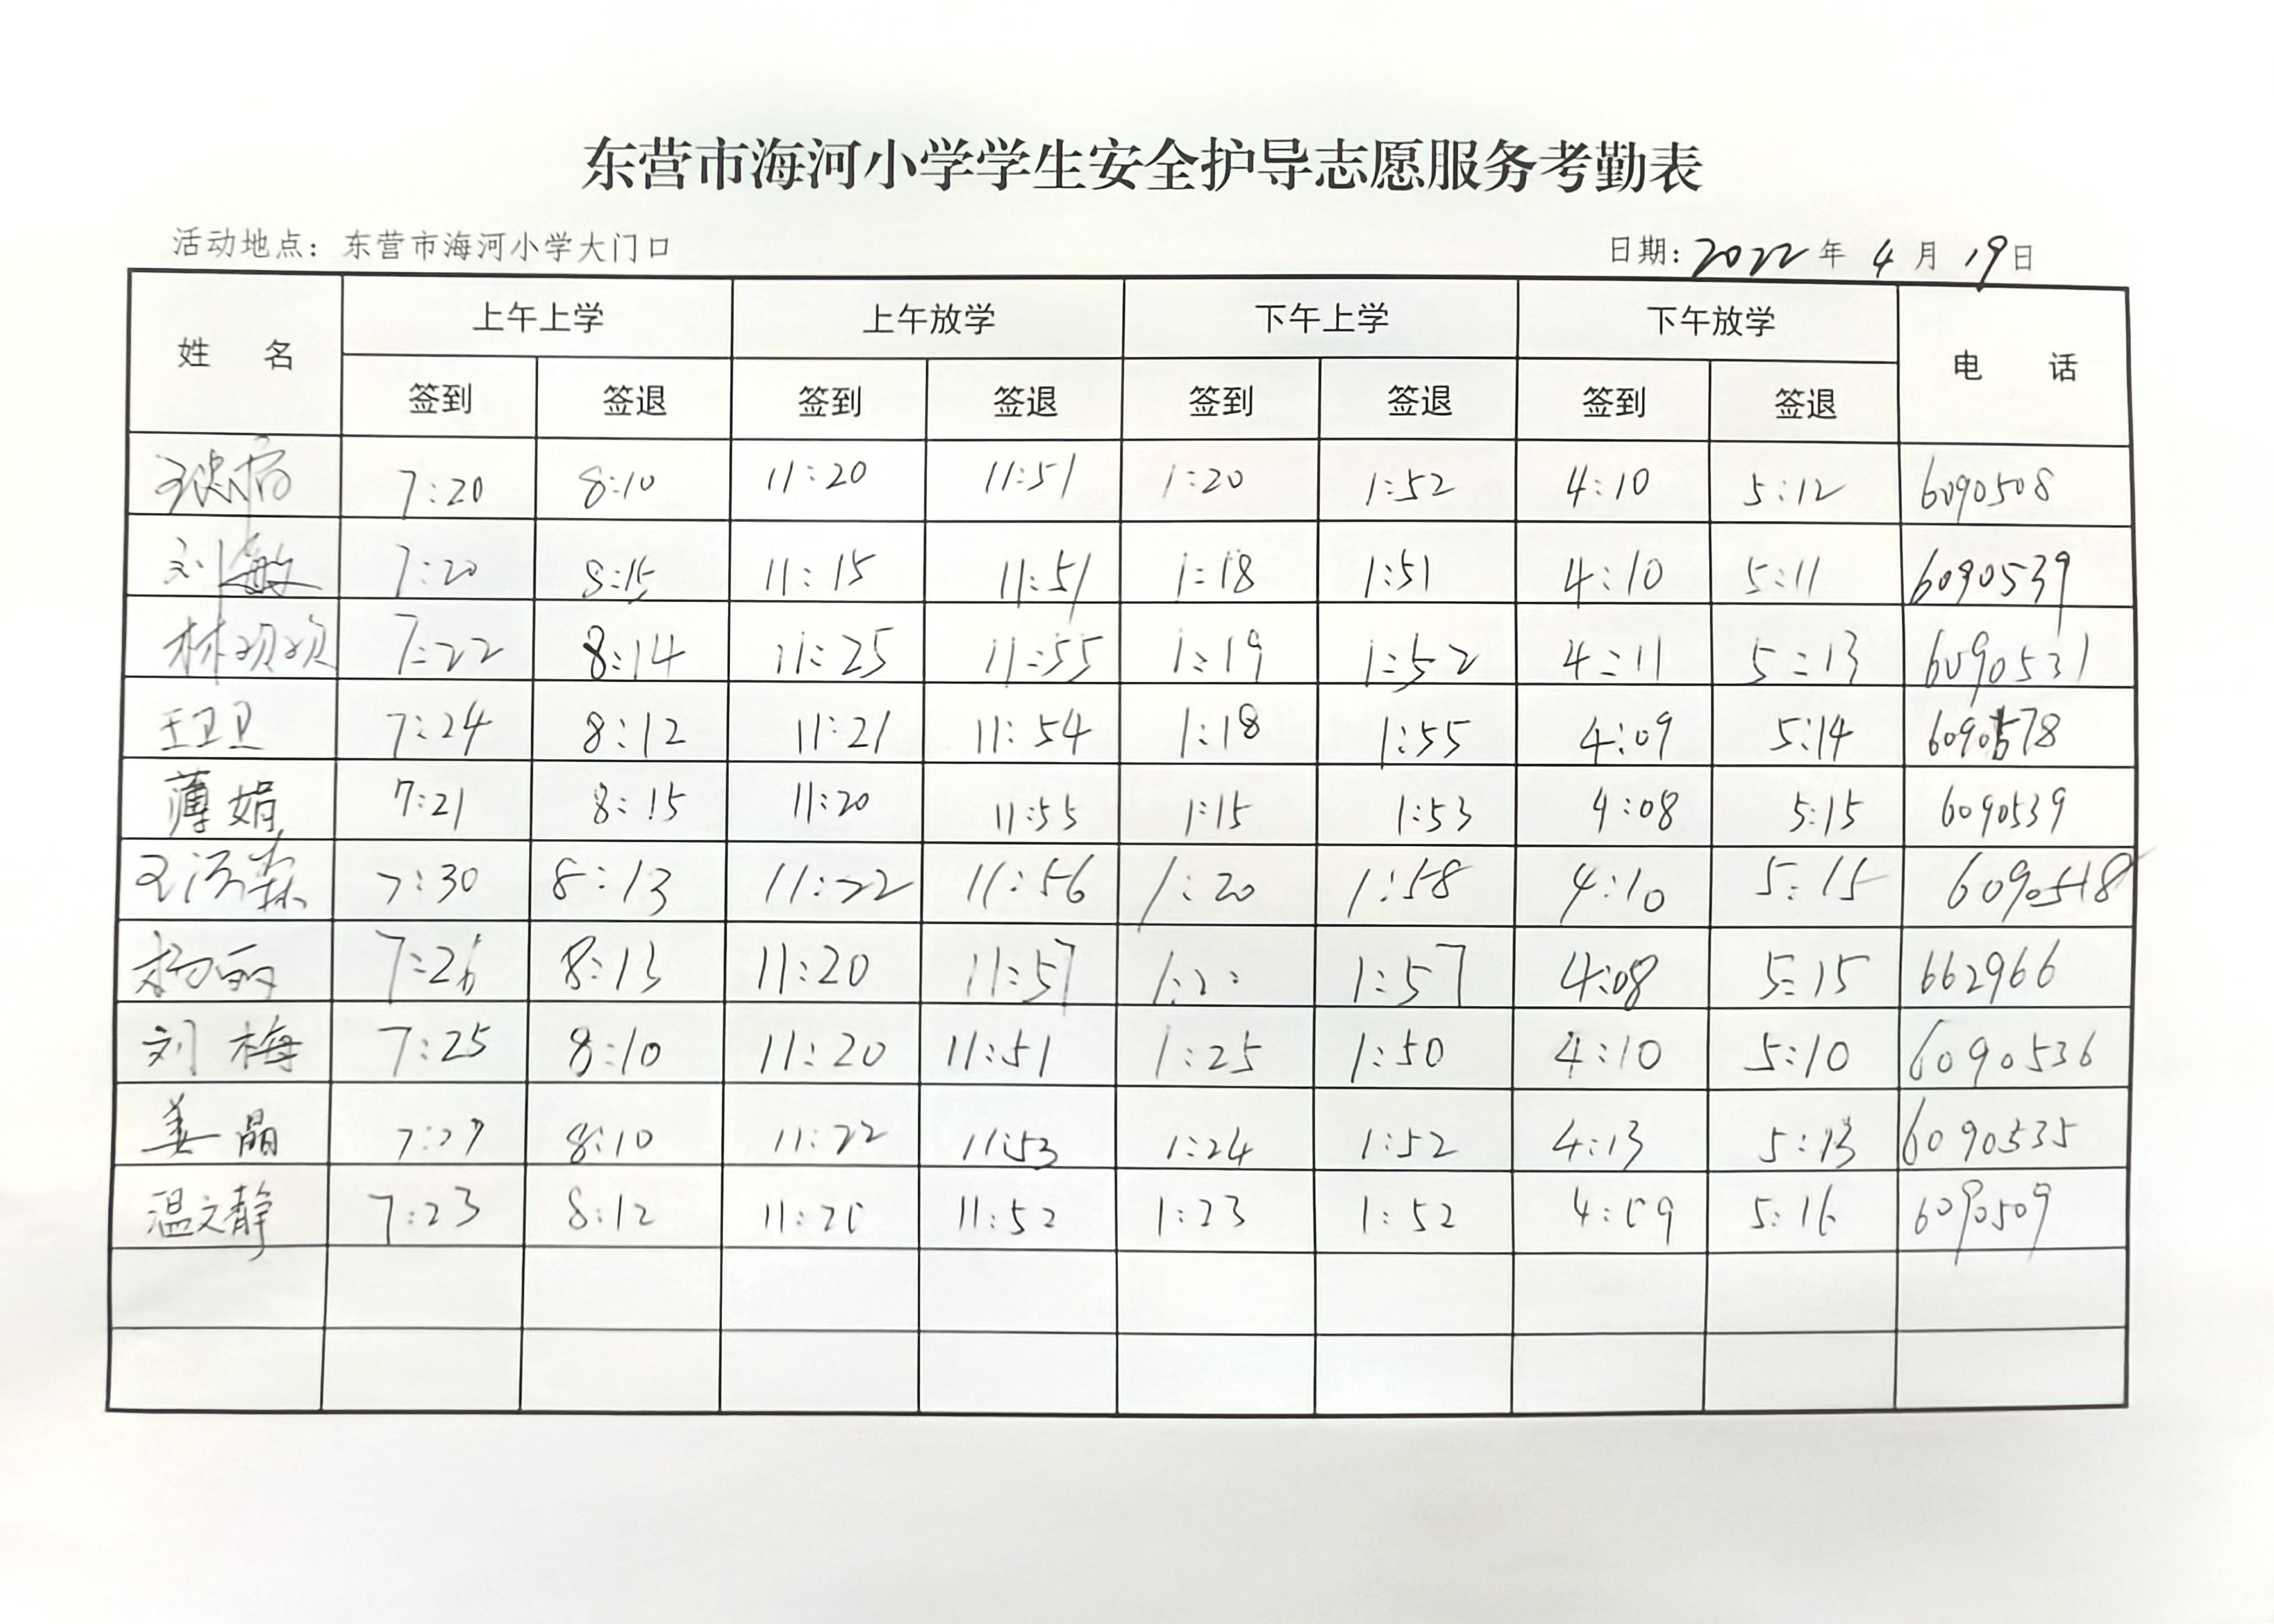 东营市海河小学学生安全护导志愿服务考勤表
活动地点：东营市海河小学大门口 日期：2022年4月19日
姓名 上午上学 上午放学 下午上学 下午放学 电话
签到 签退 签到 签退 签到 签退 签到 签退
7:20 8:10 11:20 11:51 1:20 1:52 4:10 5:12 6090508
刘敏 7:20 8:15 11:15 11:51 1:18 1:51 4:10 5:11 6090539
林颂颂 7:22 8:14 11:25 11:55 1:19 1:52 4:11 5:13 6090531
王卫卫 7:24 8:12 11:21 11:54 1:18 1:55 4:09 5:14 6090578
薄娟 7:21 8:15 11:20 11:55 1:15 1:53 4:08 5:15 6090539
7:30 8:13 11:22 11:56 1:20 1:58 4:10 5:15 6090518
杨丽 7:26 8:13 11:20 11:57 1:57 4:08 5:15 662966
刘梅 7:25 8:10 11:20 11:51 1:25 1:50 4:10 5:10 6090536
姜晶 7:27 8:10 11:22 11:53 1:24 1:52 4:13 5:13 6090535
温文静 7:23 8:12 11:52 1:23 1:52 4:09 5:16 6090509